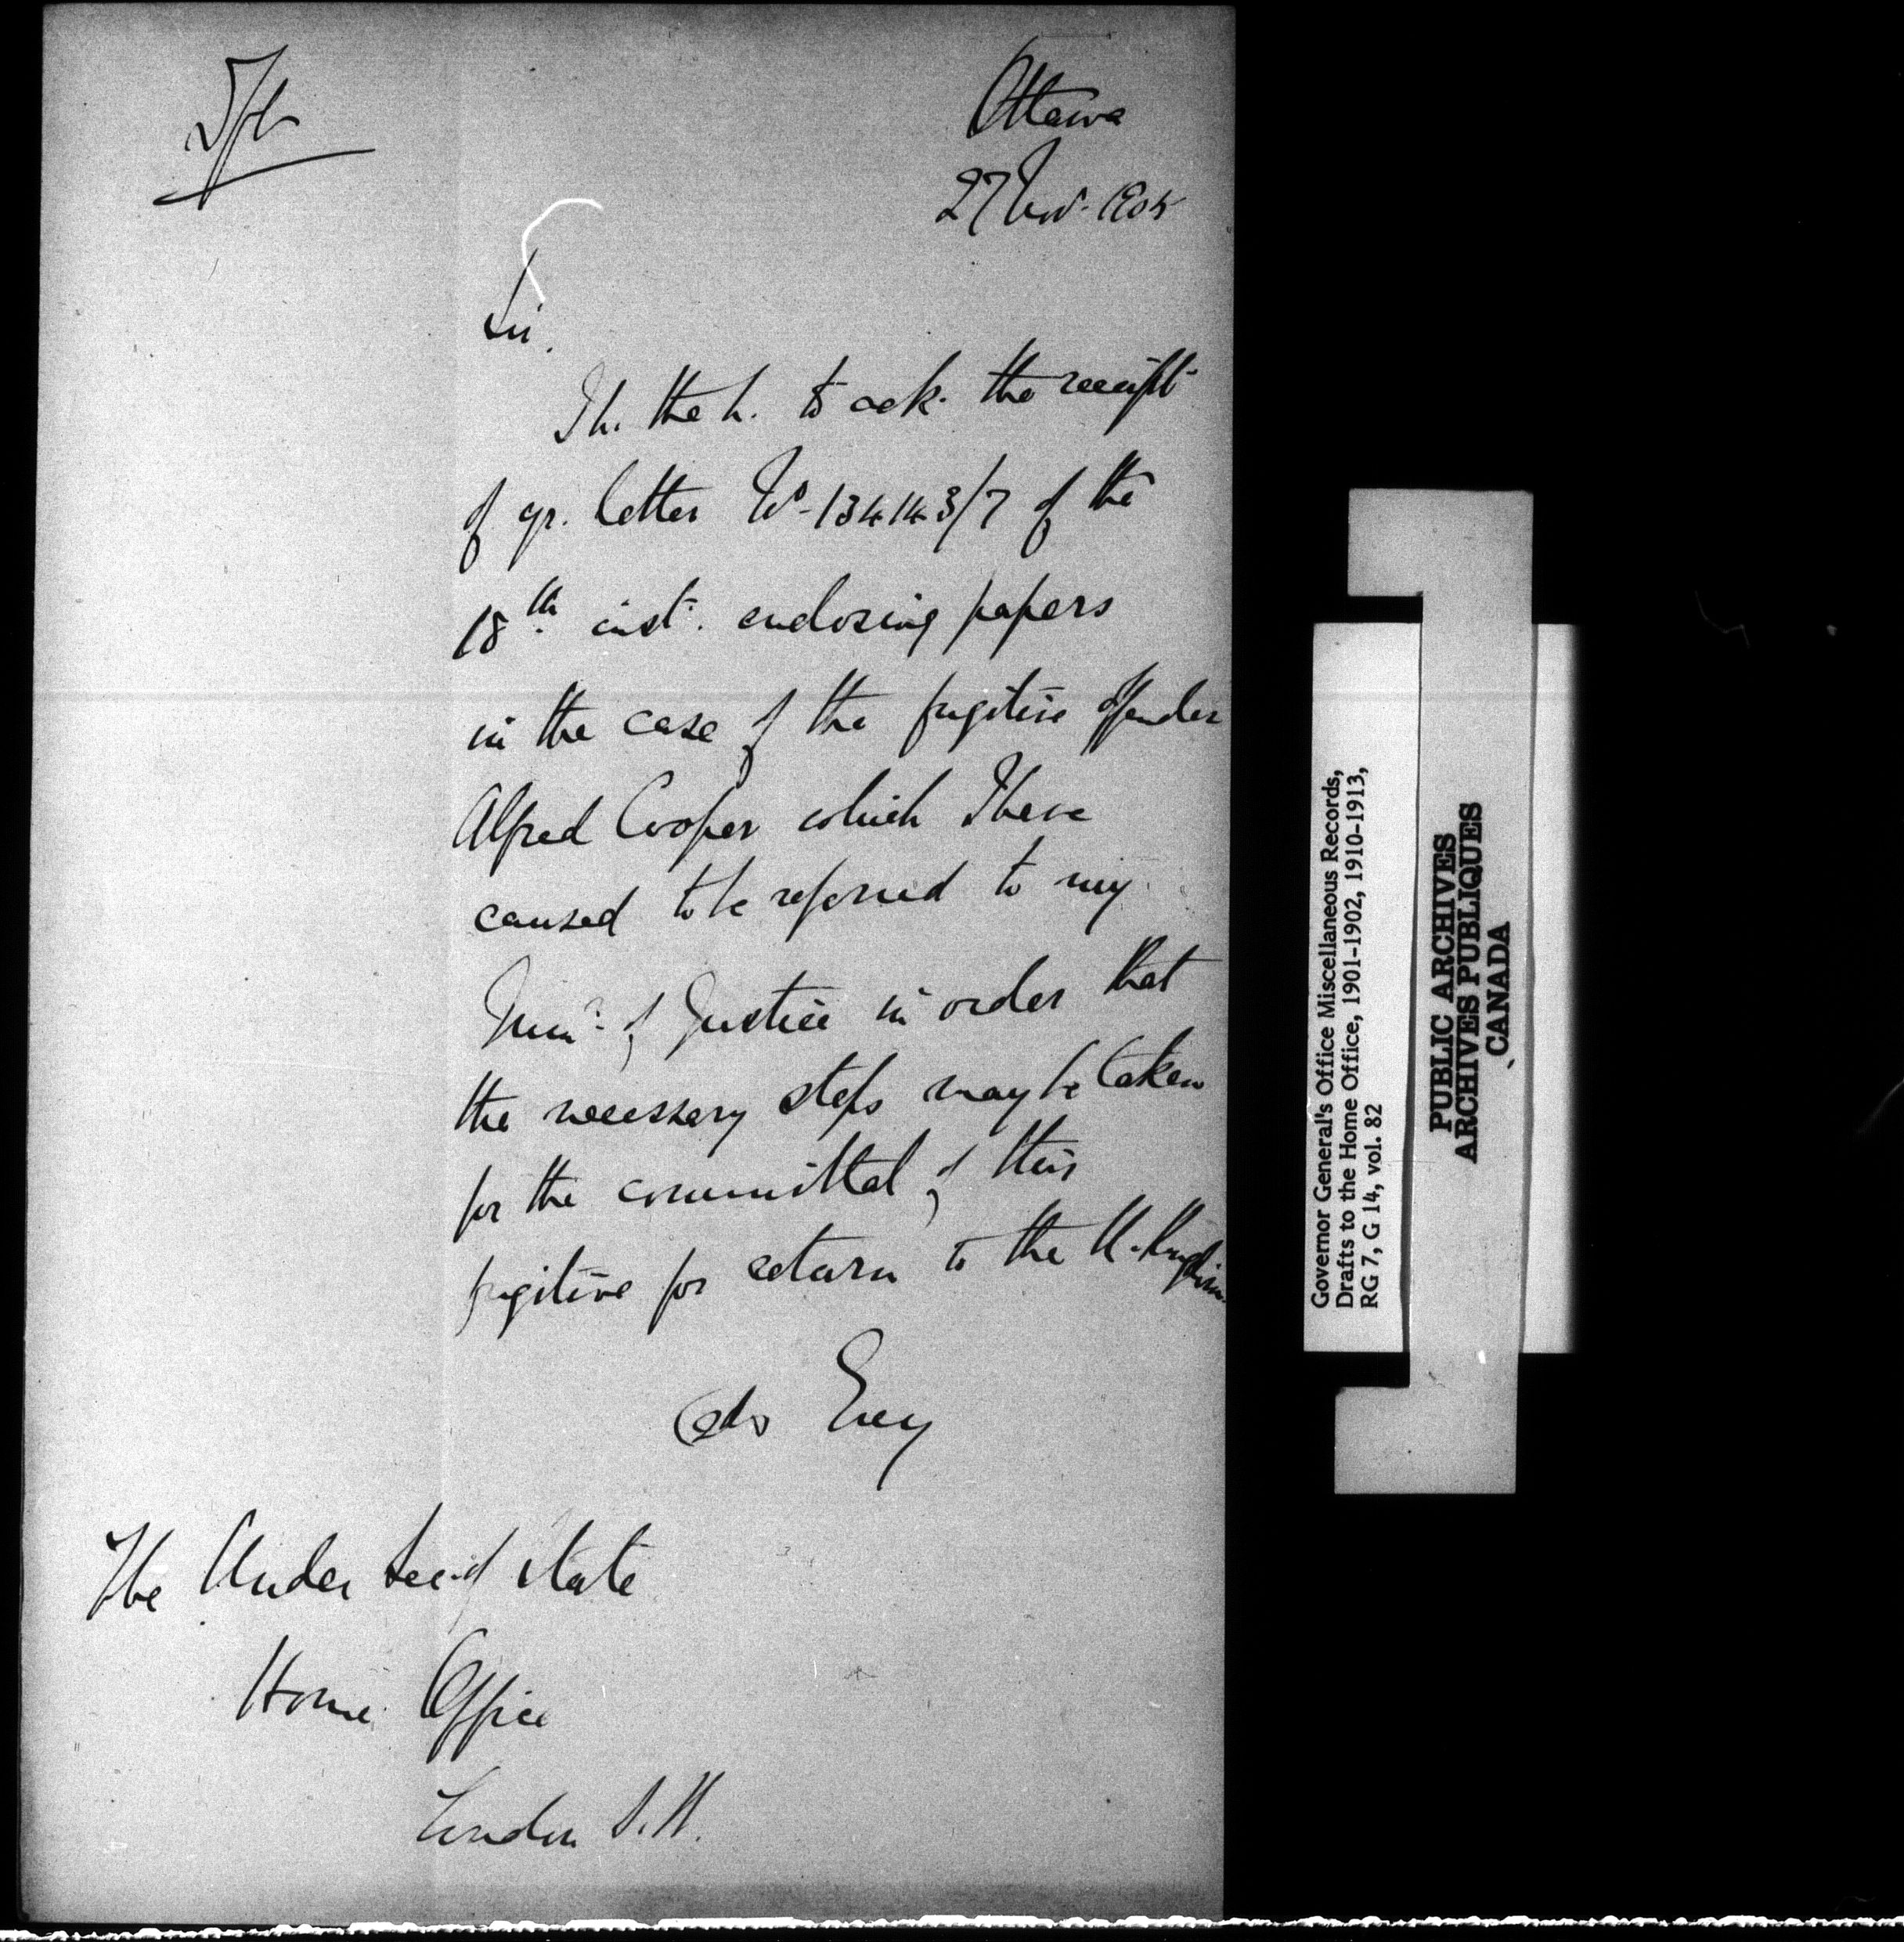 Dft
Ottawa
27 Nov. 1905
Sir,
I h. the h. to ack. the receipt
of yr. letter No. 134143/7 of the
18th inst. enclosing papers
in the case of the fugitive offender
Alfred Cooper which I have
caused to be referred to my
Minr. of Justice in order that
the necessary steps may be taken
for the committal of this
fugitive for return to the U. Kingdom.
(sd) Grey
The Under Sec. of State
Home Office
London S.W.
Governor General's Office Miscellaneous Records,
Drafts to the Home Office, 1901-1902, 1910-1913,
RG 7, G 14, vol. 82
PUBLIC ARCHIVES
ARCHIVES PUBLIQUES
CANADA